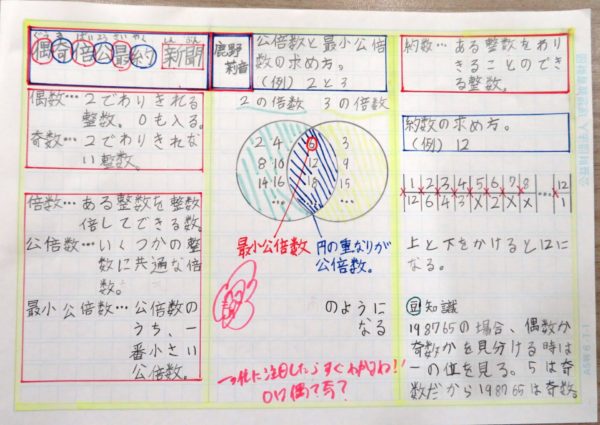 ぐうすう きすう ばいすう こう さい やく しんぶん
偶奇倍公最約新聞
偶数…2でわりきれる
整数。0も入る。
奇数…2でわりきれな
い整数。
倍数…ある整数を整数
倍してできる数。
公倍数…いくつかの整
数に共通な倍
数。
最小公倍数…公倍数の
うち、一
番小さい
公倍数。
公倍数と最小公倍
数の求め方。
(例)2と3
2の倍数 3の倍数
2 4 6 3
8 10 12 9
14 16 18 15
… … …
最小公倍数
円の重なりが
公倍数。
のように
なる
一の位に注目したらすぐわかるわ!!
0は偶?奇?
約数…ある整数をわり
きることのでき
る整数。
約数の求め方。
(例)12
1 2 3 4 5 7 8 … 12
12 6 4 3 X 2 X X … 1
上と下をかけると12に
なる。
豆知識
198765の場合、偶数か
奇数かを見分ける時は
一の位を見る。5は奇
数だから198765は奇数。